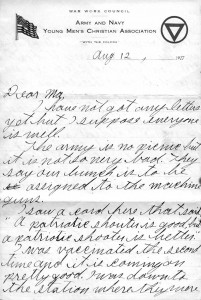 WAR WORK COUNCIL
ARMY AND NAVY
YOUNG MEN'S CHRISTIAN ASSOCIATION
"WITH THE COLORS"
Aug 12, 191
Dear Ma,
I have not got any letters
yet but I suppose everyone
is well.
The army is no picnic but
it is not so very bad. They
say our bunch is to be
assigned to the machine
guns.
I saw a card here that said
"A patriotic shouter is good but
a patriotic shooter is better."
I was vaccinated the second
time and it is coming on
pretty good. I was down to
the station where they were